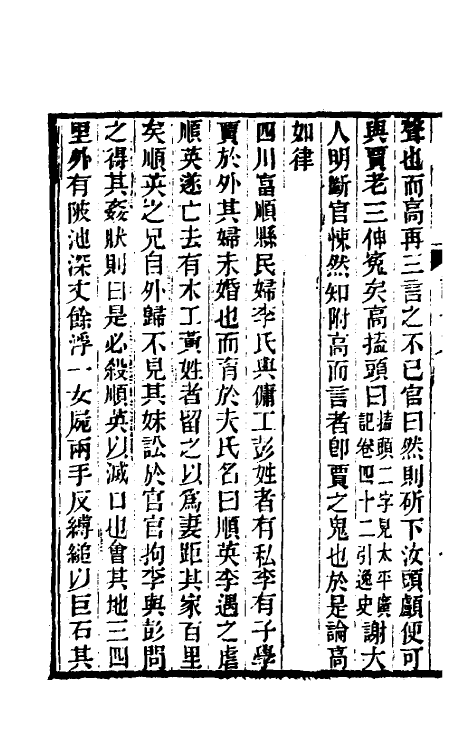 聲也而高再三言之不已官曰然則斫下汝頭顱便可
與賈老三伸冤矣高搕頭曰搕頭二字見太平廣記卷四十二引逸史謝大
人明斷官悚然知附高而言者卽賈之鬼也於是論高
如律
四川富順縣民婦李氏與傭工彭姓者有私李有子學
賈於外其婦未婚也而育於夫氏名曰順英李遇之虐
順英遂亡去有木工黃姓者留之以爲妻距其家百里
矣順英之兄自外歸不見其妹訟於官官拘李與彭問
之得其姦狀則曰是必殺順英以滅口也會其地三四
里外有陂池深丈餘浮一女屍兩手反縛縋以巨石其